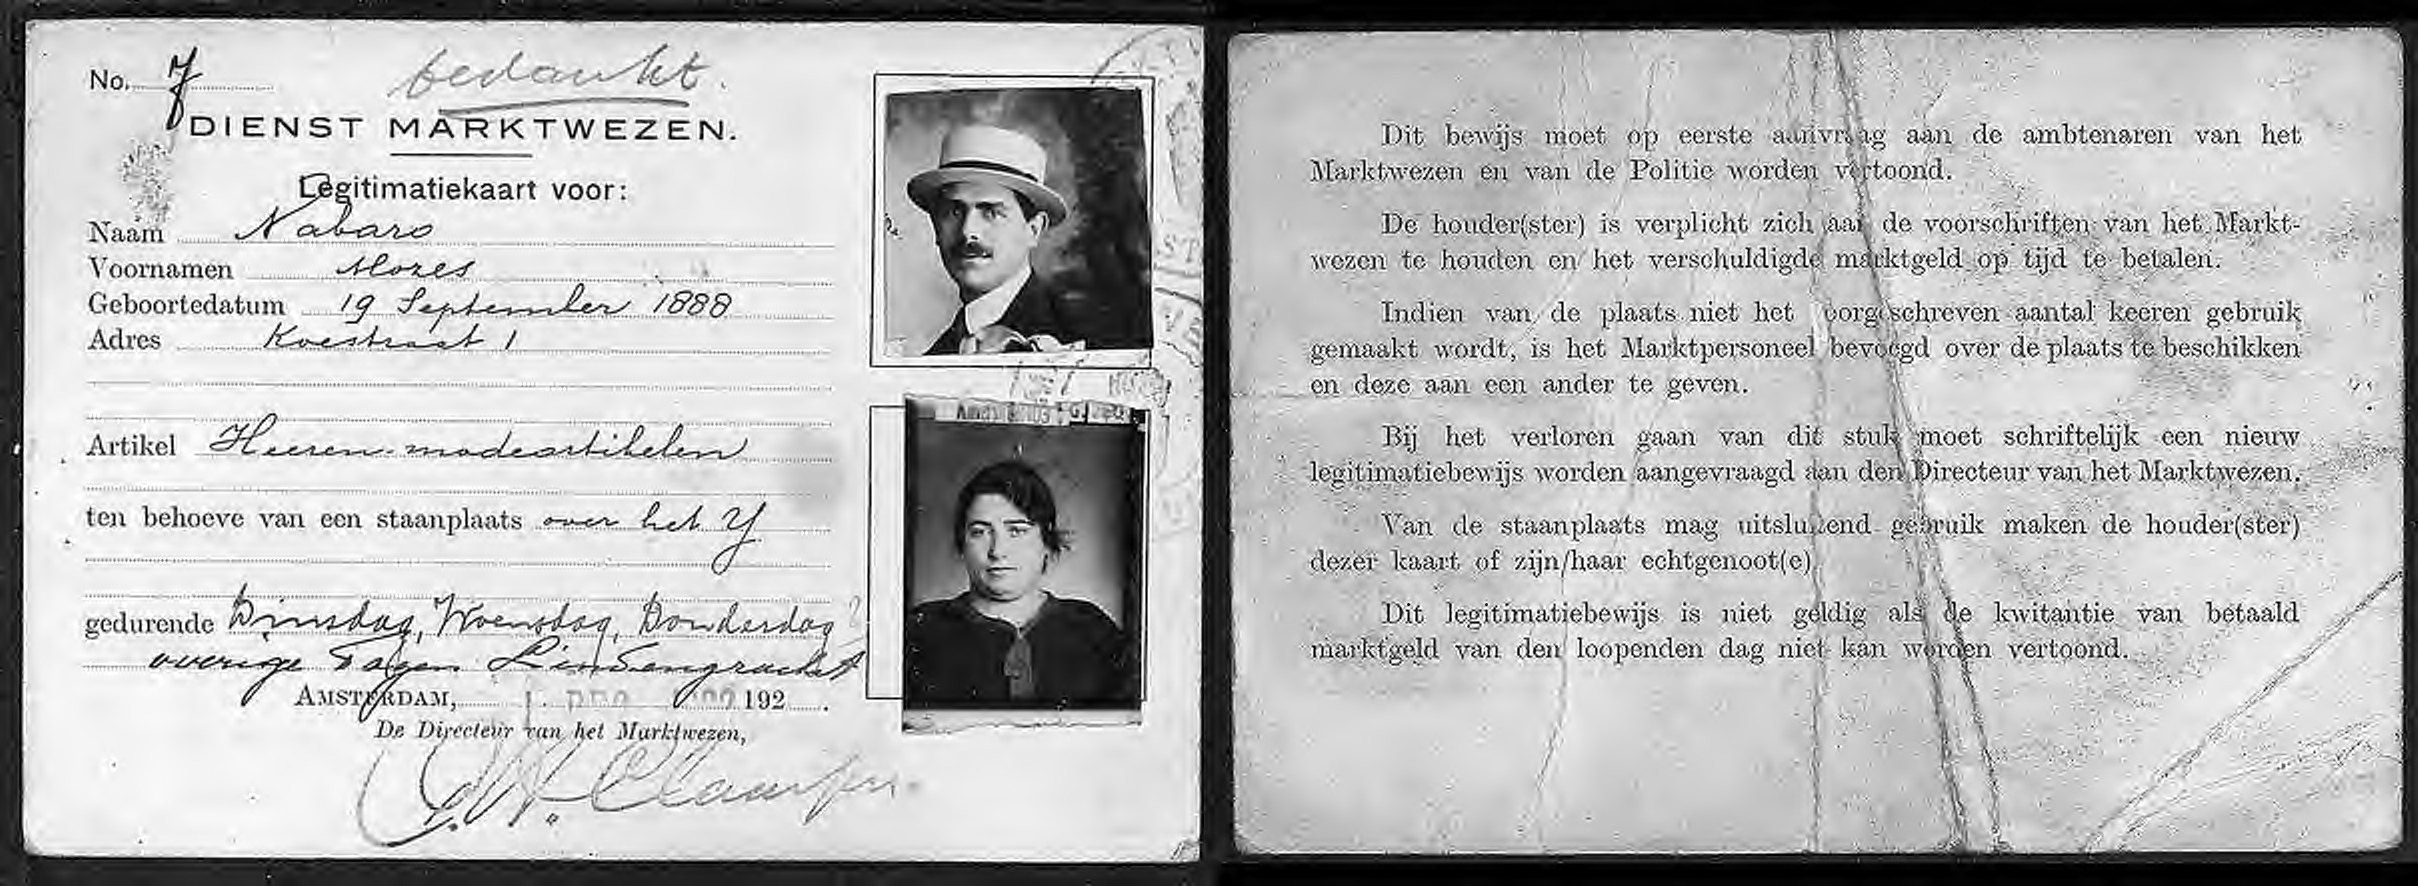 No. 7
bedankt.
DIENST MARKTWEZEN.
Legitimatiekaart voor:
Naam Nabaro
Voornamen Mozes
Geboortedatum 19 September 1888
Adres Koestraat 1
Artikel Heeren-modeartikelen
ten behoeve van een staanplaats over het Y
gedurende Dinsdag, Woensdag, Donderdag
overige Dagen Lindengracht
AMSTERDAM, 1 DEC. 192 .
De Directeur van het Marktwezen,
Dit bewijs moet op eerste aanvraag aan de ambtenaren van het
Marktwezen en van de Politie worden vertoond.
De houder(ster) is verplicht zich aan de voorschriften van het Markt-
wezen te houden en het verschuldigde marktgeld op tijd te betalen.
Indien van de plaats niet het voorgeschreven aantal keeren gebruik
gemaakt wordt, is het Marktpersoneel bevoegd over de plaats te beschikken
en deze aan een ander te geven.
Bij het verloren gaan van dit stuk moet schriftelijk een nieuw
legitimatiebewijs worden aangevraagd aan den Directeur van het Marktwezen.
Van de staanplaats mag uitsluitend gebruik maken de houder(ster)
dezer kaart of zijn/haar echtgenoot(e)
Dit legitimatiebewijs is niet geldig als de kwitantie van betaald
marktgeld van den loopenden dag niet kan worden vertoond.